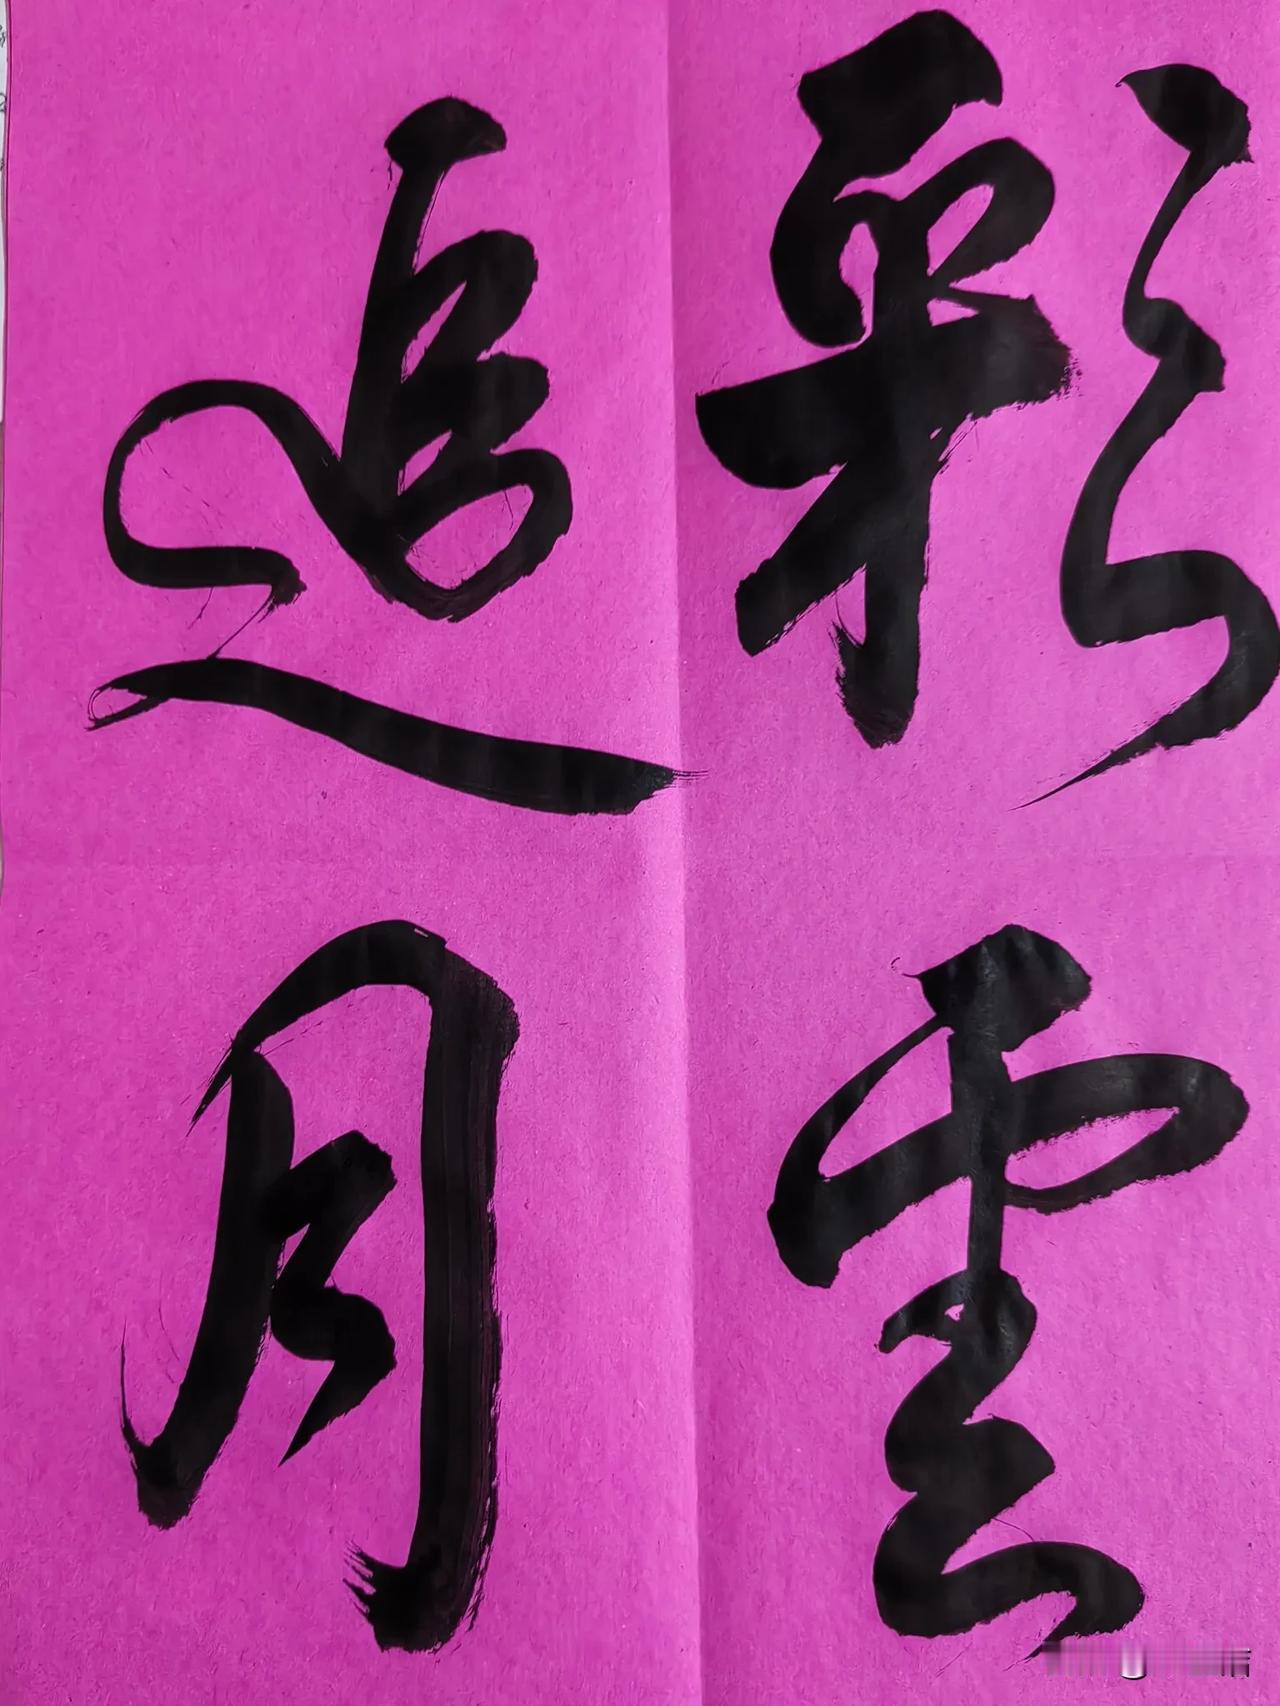 彩雲
追月